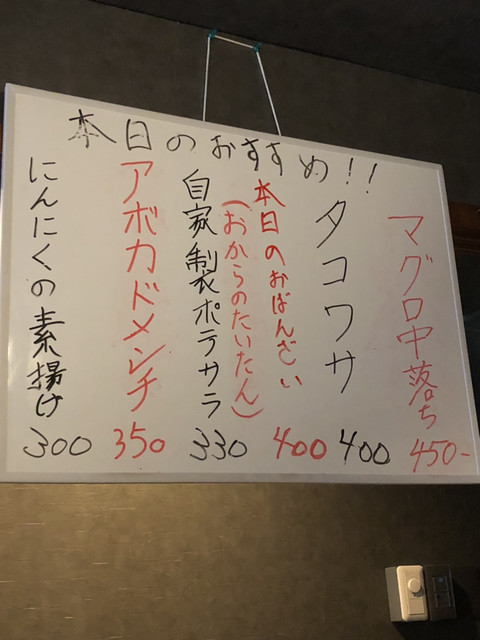 本日のおすすめ!!
マグロ中落ち
450-
タコワサ
400
本日のおばんざい
(おからのたいたん)
400
自家製ポテサラ
330
アボカドメンチ
350
にんにくの素揚げ
300